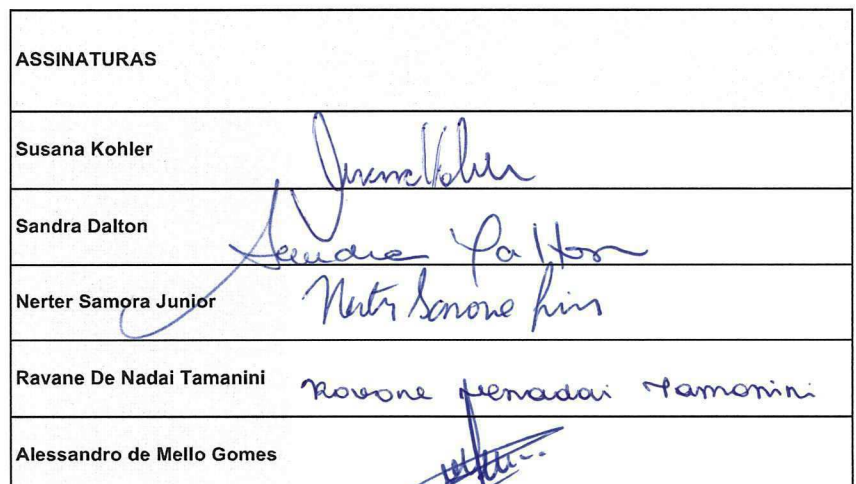 ASSINATURAS
Susana Kohler
Sandra Dalton
Sandra Dalton
Nerter Samora Junior
Ravane De Nadai Tamanini
Ravane Denadai Tamanini
Alessandro de Mello Gomes